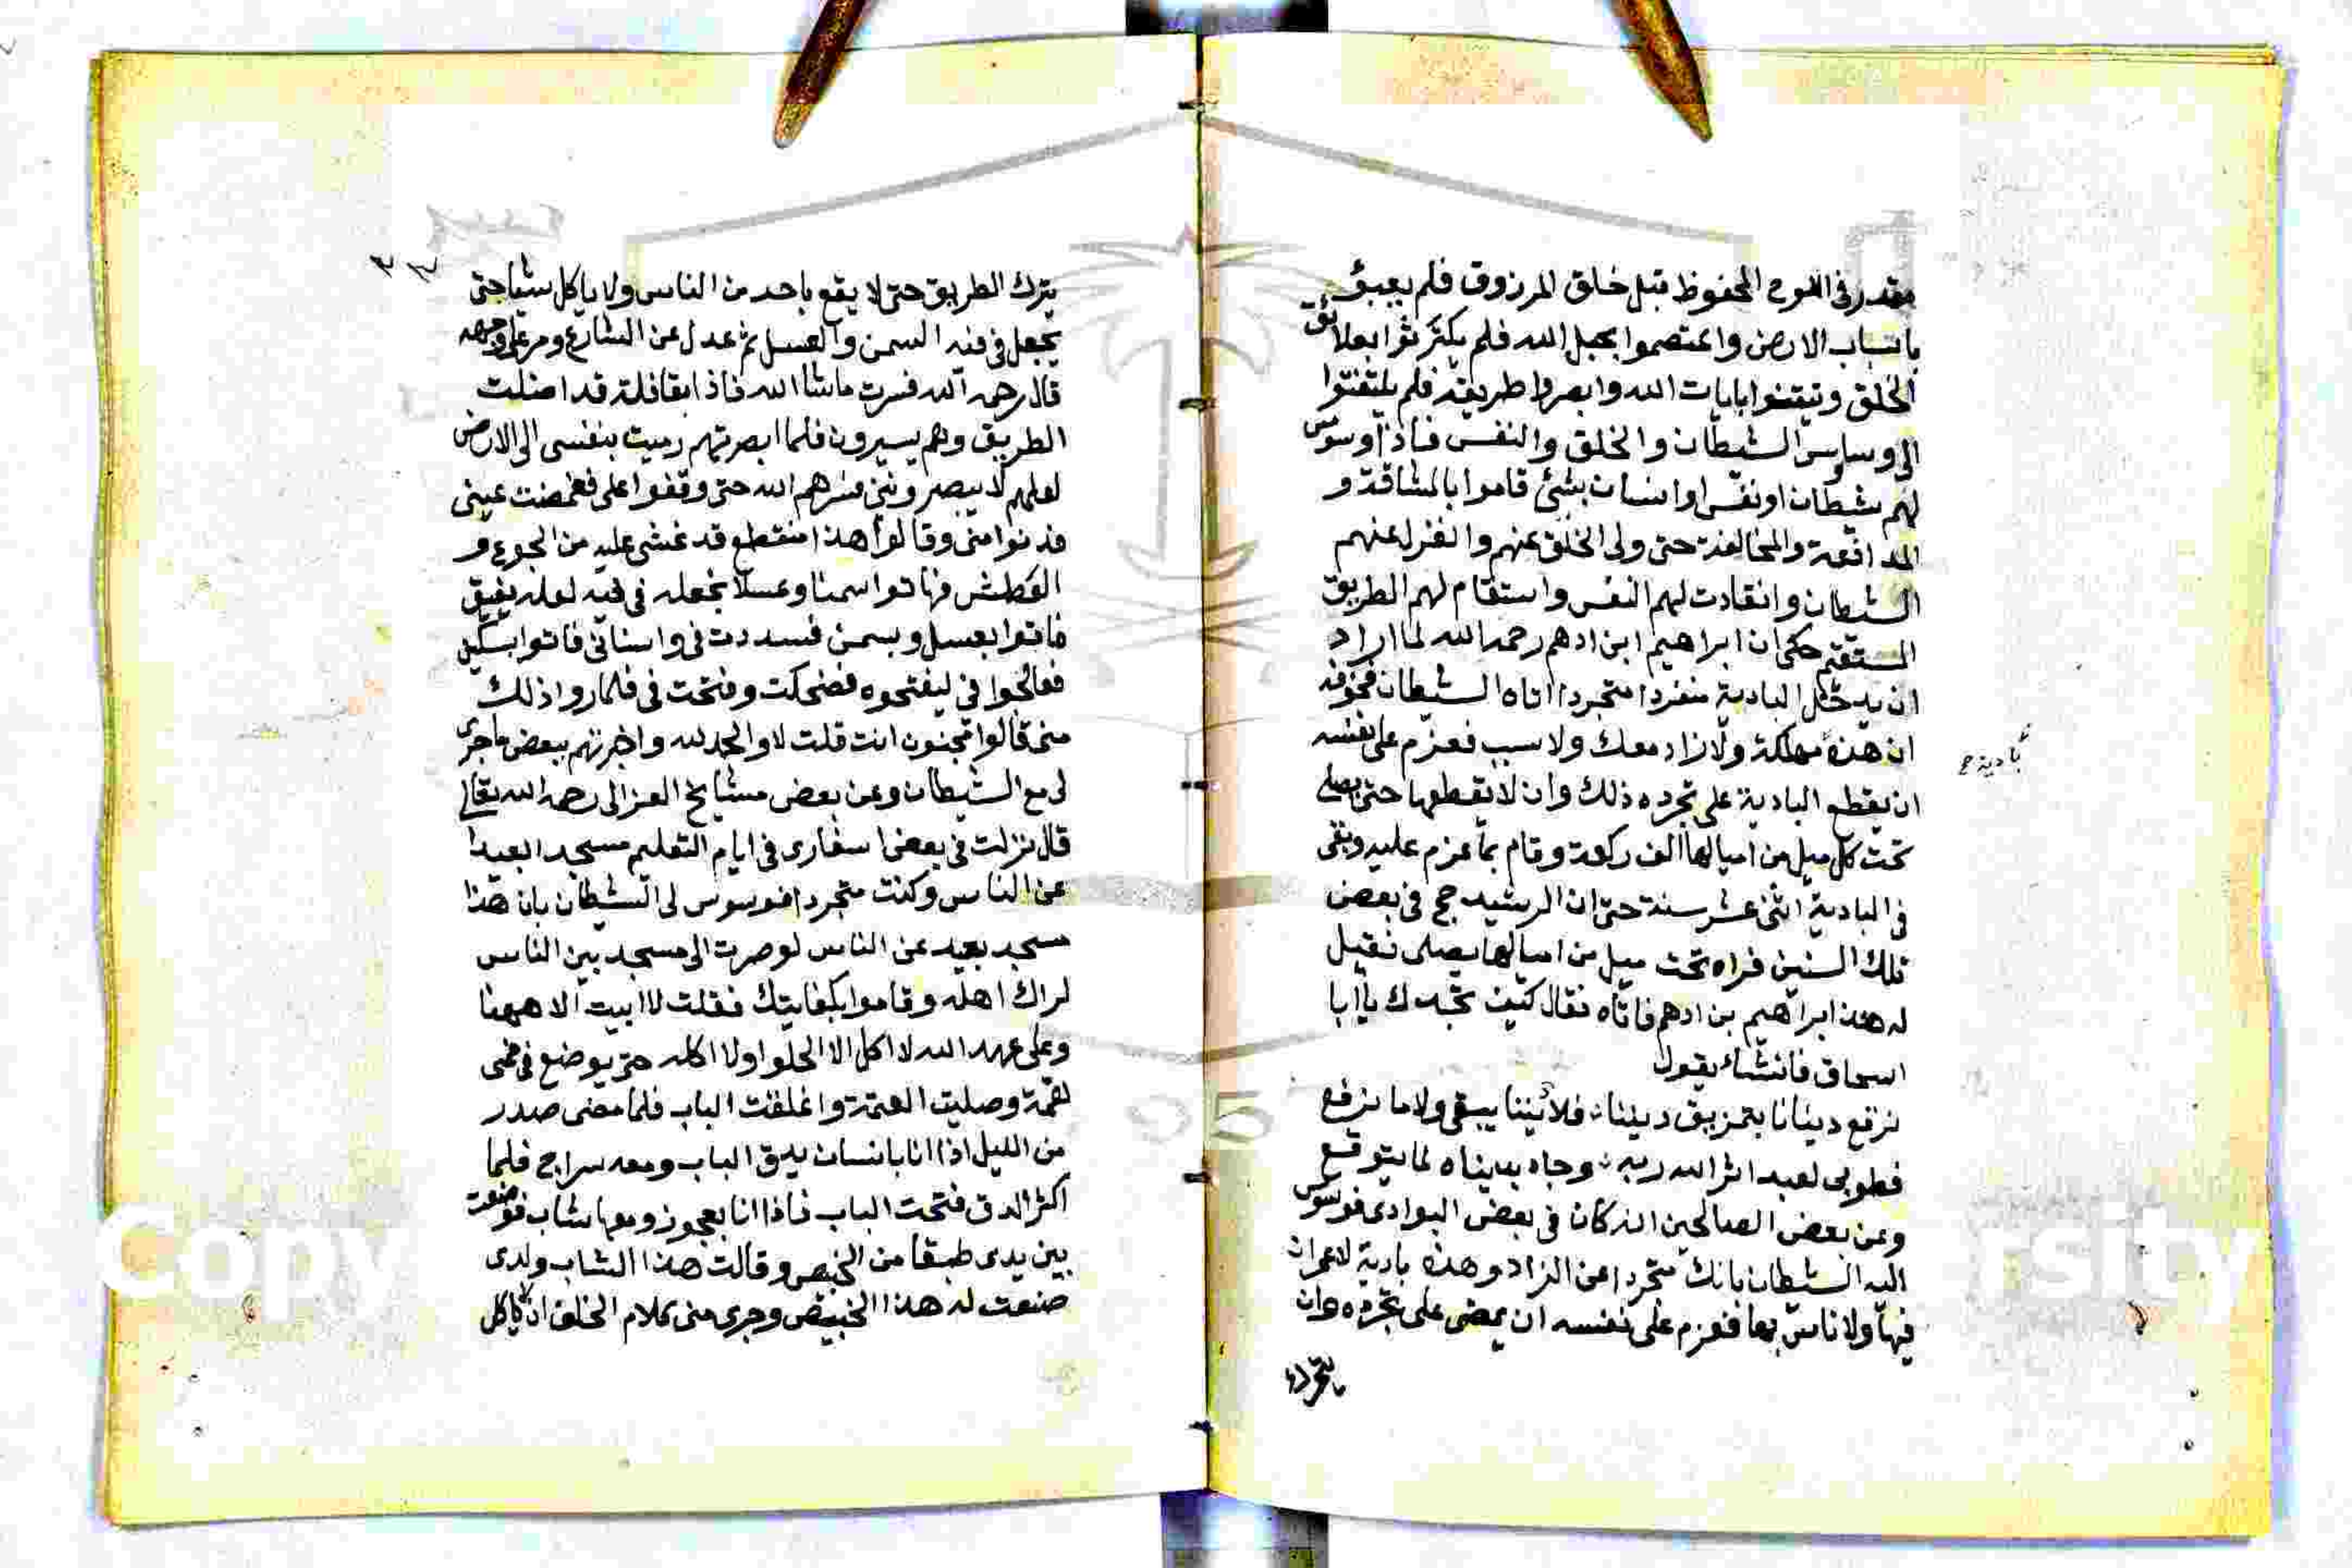 مقدر في اللوح المحفوظ قبل خلق المرزوق فلم يعبئو
باسباب الارض واعتصموا بحبل الله فلم يكترثوا بعلائق
الخلق وتيقنوا بايات الله وابصروا طريقه فلم يلتفتوا
الى وساوس الشيطان والخلق والنفس فاذا وسوس
لهم شيطان او نفس او انسان بشئ قاموا بالمشاقة و
المدافعة والمخالفة حتى ولى الخلق عنهم وانعزل عنهم
الشيطان وانقادت لهم النفس واستقام لهم الطريق
المستقيم حكى ان ابراهيم ابن ادهم رحمه الله لما اراد
ان يدخل البادية منفردا متجردا اتاه الشيطان فخوفه
ان هذه مهلكة ولا زاد معك ولا سبب فعزم على نفسه
بادية ح
ان يقطع البادية على تجرده ذلك وان لا يقطعها حتى يصلي
تحت كل ميل من اميالها الف ركعة وقام بما عزم عليه وبقى
في البادية اثنى عشر سنة حتى ان الرشيد حج في بعض
تلك السنين فراه تحت ميل من اميالها يصلى فقيل
له هذا ابراهيم بن ادهم فاتاه فقال كيف تجدك يا ابا
اسحاق فانشاء يقول
نرقع دنيانا بتمزيق ديننا فلا ديننا يبقى ولا ما نرقع
فطوبى لعبد اثر الله ربه وجاد بدنياه لما يتوقع
وعن بعض الصالحين انه كان في بعض البوادى فوسوس
اليه الشيطان بانك متجرد عن الزاد وهذه بادية لا عمران
فيها ولا ناس بها فعزم على نفسه ان يمضى على تجرده وان
يترك
يترك الطريق حتى لا يقع باحد من الناس ولا ياكل شيئا حتى
يجعل في فيه السمن والعسل ثم عدل عن الشارع ومر على وجهه
قال رحمه الله فسرت ما شا الله فاذا بقافلة قد اضلت
الطريق وهم يسيرون فلما ابصرتهم رميت بنفسى الى الارض
لعلهم لا يبصرونني فسيرهم الله حتى وقفوا على فغمضت عينى
فدنوا منى وقالوا هذا منقطع قد غشى عليه من الجوع و
العطش فهاتوا سمنا وعسلا نجعله في فيه لعله يفيق
فاتوا بعسل وبسمن فسددت في واسنانى فاتوا بسكين
فعالجوا في ليفتحوه فضحكت وفتحت في فلما روا ذلك
منى قالوا مجنون انت قلت لا والحمد لله واخبرتهم ببعض ما جرى
لى مع الشيطان وعن بعض مشايخ الغزالى رحمه الله تعالى
قال نزلت في بعض اسفارى في ايام التعليم مسجدا بعيدا
عن الناس وكنت متجردا فوسوس لى الشيطان بان هذا
مسجد بعيد عن الناس لو صرت الى مسجد بين الناس
لراك اهله وقاموا بكفايتك فقلت لا ابيت الا ههنا
وعلى عهد الله لا اكل الا الحلوا ولا اكله حتى يوضع في فمى
لقمة وصليت العتمة واغلقت الباب فلما مضى صدر
من الليل اذا انا بانسان يدق الباب ومعه سراج فلما
اكثر الدق فتحت الباب فاذا انا بعجوز ومعها شاب فوضعت
بين يدى طبقا من الخبيص وقالت هذا الشاب ولدى
صنعت له هذا الخبيص وجرى منى كلام الخلف ان لا ياكل
Copy
rsity